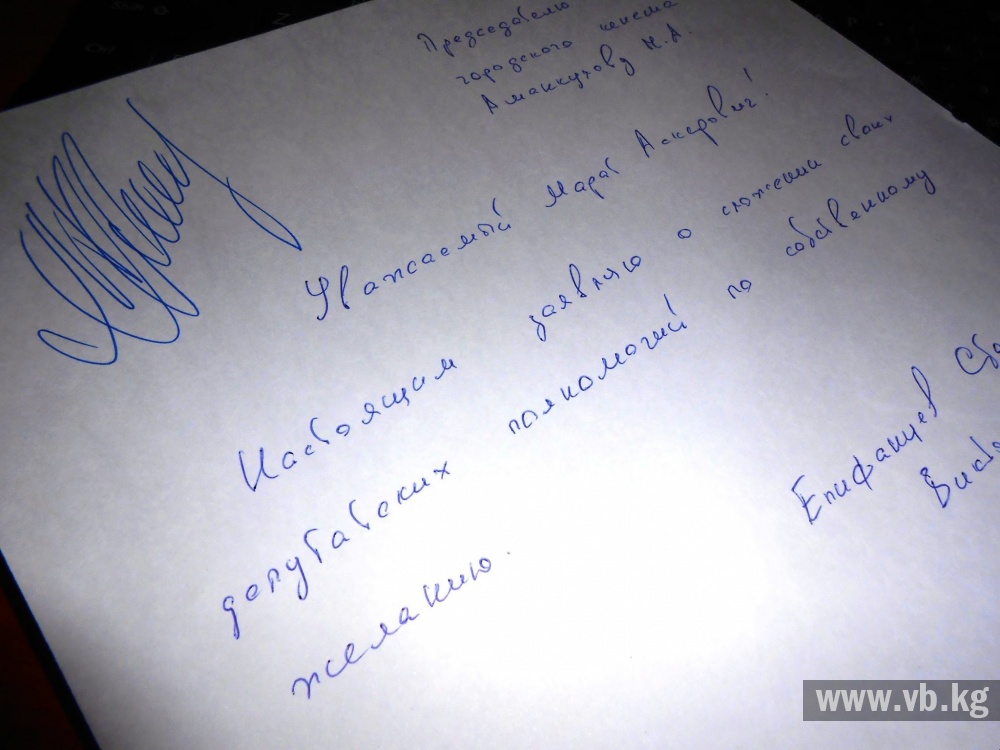 Председателю
городского кенеша
Аманкулову М.А.
Уважаемый Марат Аскерович!
Настоящим заявляю о сложении своих
депутатских полномочий по собственному
желанию.
Епифанцев
www.vb.kg